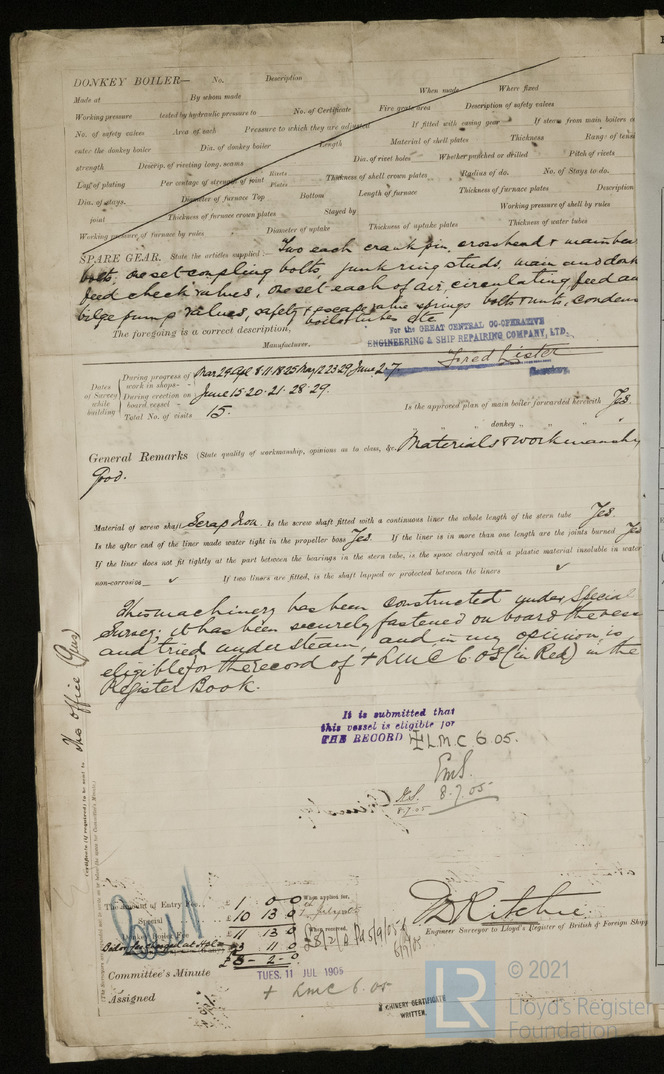 DONKEY BOILER— No. Description
Made at By whom made When made Where fixed
Working pressure tested by hydraulic pressure to No. of Certificate Fire grate area Description of safety valves
No. of safety valves Area of each Pressure to which they are adjusted If fitted with easing gear If steam from main boilers
enter the donkey boiler Dia. of donkey boiler Length Material of shell plates Thickness Range of tens
strength Descrip. of riveting long. seams Dia. of rivet holes Whether punched or drilled Pitch of rivets
Lap of plating Per centage of strength of joint Rivets Plates Thickness of shell crown plates Radius of do. No. of Stays to do.
Dia. of stays. Diameter of furnace Top Bottom Length of furnace Thickness of furnace plates Description
joint Thickness of furnace crown plates Stayed by Working pressure of shell by rules
Working pressure of furnace by rules Diameter of uptake Thickness of uptake plates Thickness of water tubes
SPARE GEAR. State the articles supplied:— Two each crank pin, crosshead & main bea
bolts, one set coupling bolts, junk ring studs, main and don
feed check valves, one set each of air, circulating feed an
bilge pump valves, safety & escape valve springs bolts & nuts, conden
boiler tubes etc
The foregoing is a correct description,
For the GREAT CENTRAL CO-OPERATIVE
ENGINEERING & SHIP REPAIRING COMPANY, LTD.
Manufacturer.
Fred Lister
Secretary.
Dates of Survey while building
During progress of work in shops-- Mar 29 Apl 8 11 18 25 May 2 23 29 June 2.7
During erection on board vessel -- June 15.20.21.28.29.
Total No. of visits 15.
Is the approved plan of main boiler forwarded herewith Yes.
" " donkey " " "
General Remarks (State quality of workmanship, opinions as to class, &c. Materials & workmanship
Good.
Material of screw shaft Scrap Iron. Is the screw shaft fitted with a continuous liner the whole length of the stern tube Yes.
Is the after end of the liner made water tight in the propeller boss Yes. If the liner is in more than one length are the joints burned Yes
If the liner does not fit tightly at the part between the bearings in the stern tube, is the space charged with a plastic material insoluble in water
non-corrosive ✓ If two liners are fitted, is the shaft lapped or protected between the liners ✓
This machinery has been constructed under Special
Survey; it has been securely fastened on board the vess
and tried under steam, and in my opinion, is
eligible for the record of + LMC 6.05 (in Red) in the
Register Book.
It is submitted that
this vessel is eligible for
THE RECORD + L.M.C 6.05.
8.7.05
8.7.05
This office
Certificate (if required) to be sent to
The amount of Entry Fee.. £ 1 0 0 When applied for,
Special £ 10 13 0
Boiler Fee £ 11 13 0 When received,
3 11 0
Committee's Minute TUES. 11 JUL 1905
Assigned + LMC 6.05
D Ritchie
Engineer Surveyor to Lloyd's Register of British & Foreign Shipp
MACHINERY CERTIFICATE
WRITTEN.
LR
© 2021
Lloyd's Register
Foundation